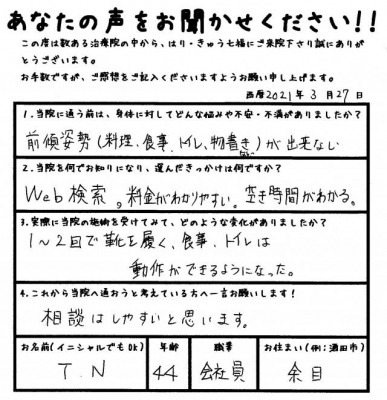 あなたの声をお聞かせください!!
この度は数ある治療院の中から、はり・きゅう七福にご来院下さり誠にありがとうございます。
お手数ですが、ご感想をご記入くださいますようお願い申し上げます。
西暦2021年 3月 27日
1.当院に通う前は、身体に対してどんな悩みや不安・不満がありましたか?
前傾姿勢(料理、食事、トイレ、物書きなど)が出来ない
2.当院を何でお知りになり、選んだきっかけは何ですか?
Web検索。料金がわかりやすい。空き時間がわかる。
3.実際に当院の施術を受けてみて、どのような変化がありましたか?
1〜2回で靴を履く、食事、トイレは
動作ができるようになった。
4.これから当院へ通おうと考えている方へ一言お願いします!
相談はしやすいと思います。
お名前(イニシャルでもOK) 年齢 職業 お住まい(例:酒田市)
T.N 44 会社員 余目